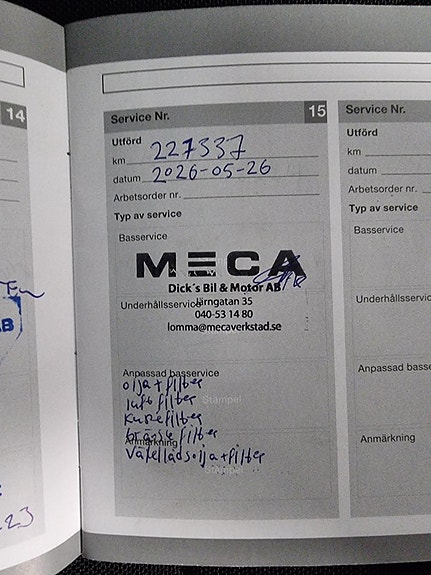 14
Service Nr. 15
Utförd
km 227337
datum 2026-05-26
Arbetsorder nr.
Typ av service
Basservice
MECA
Dick´s Bil & Motor AB
Underhållsservice Järngatan 35
040-53 14 80
lomma@mecaverkstad.se
Anpassad basservice
olja+filter
luftfilter
Stämpel
kupefilter
bränslefilter
Anmärkning
Växellådsolja+filter
Stämpel
Service Nr.
Utförd
km
datum
Arbetsorder nr.
Typ av service
Basservice
Underhållsservic
Anpassad basse
Anmärkning
AB
23